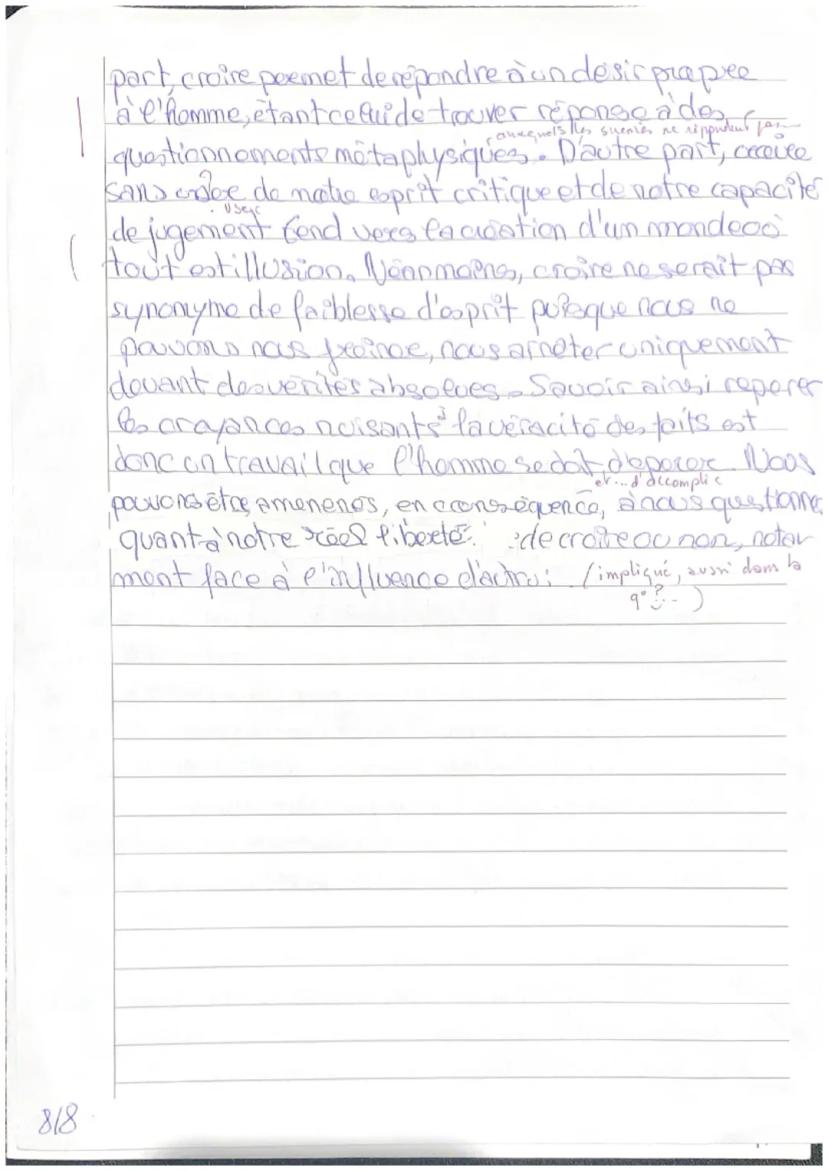 part, croire permet de répondre à un désir propre
à l'homme, étant celui de trouver réponse à des
auxquels les sciences ne répondent pas
questionnements métaphysiques. D'autre part, croire
sans de notre esprit critique et de notre capacité
user
de jugement tend vers la création d'un monde où
tout est illusion. Néanmoins, croire ne serait pas
synonyme de faiblesse d'esprit puisque nous ne
pouvons nous freiner, nous arrêter uniquement
devant des vérités absolues. Savoir ainsi reperer
les croyances nuisants à la véracité des faits est
donc un travail que l'homme se doit d'operer. Nous
et... d'accomplir
pouvons être amenenés, en conséquence, à nous questionner
quant à notre réel liberté : de croire ou non, notam
ment face à l'influence d'autrui (impliqué, aussi dans la
q° ?...)
8/8